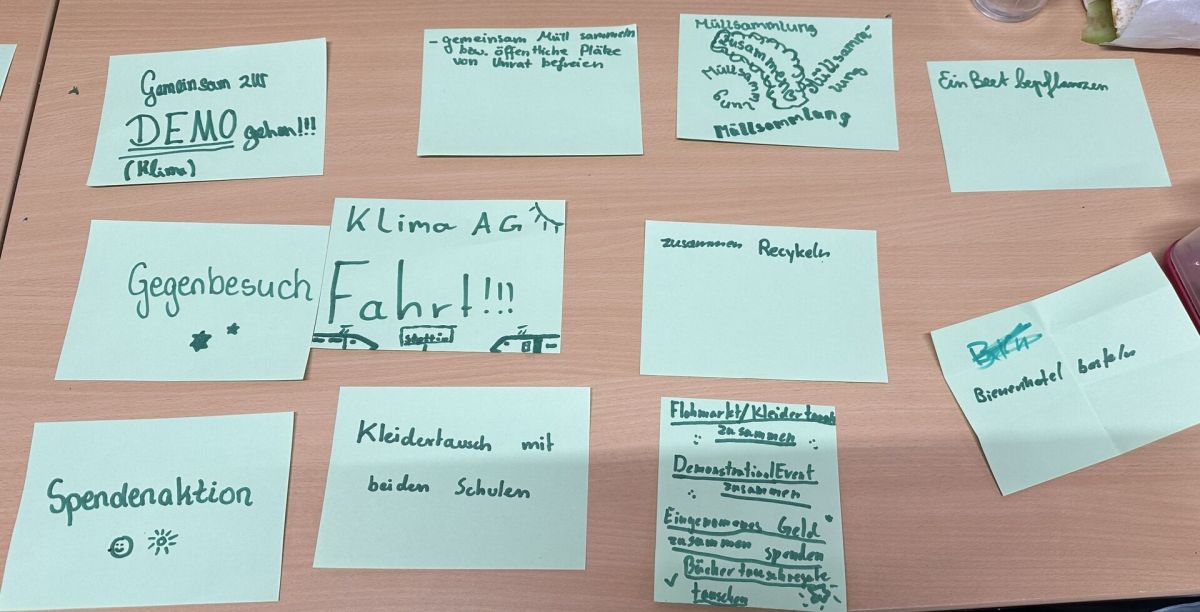 Gemeinsam zur
DEMO gehen!!!
(Klima)
- gemeinsam Müll sammeln
bzw. öffentliche Plätze
von Unrat befreien
Müllsammlung
zusammen
Müllsamm-
lung
Müllsamm
lung
Müllsammlung
Ein Beet bepflanzen
Gegenbesuch
Klima AG
Fahrt!!!
Stettin
zusammen Recykeln
Bienenhotel basteln
Spendenaktion
Kleidertausch mit
beiden Schulen
Flohmarkt/Kleidertausch
zusammen
Demonstration/Event
zusammen
Eingenomenes Geld
zusammen spenden
Büchertauschregale
tauschen